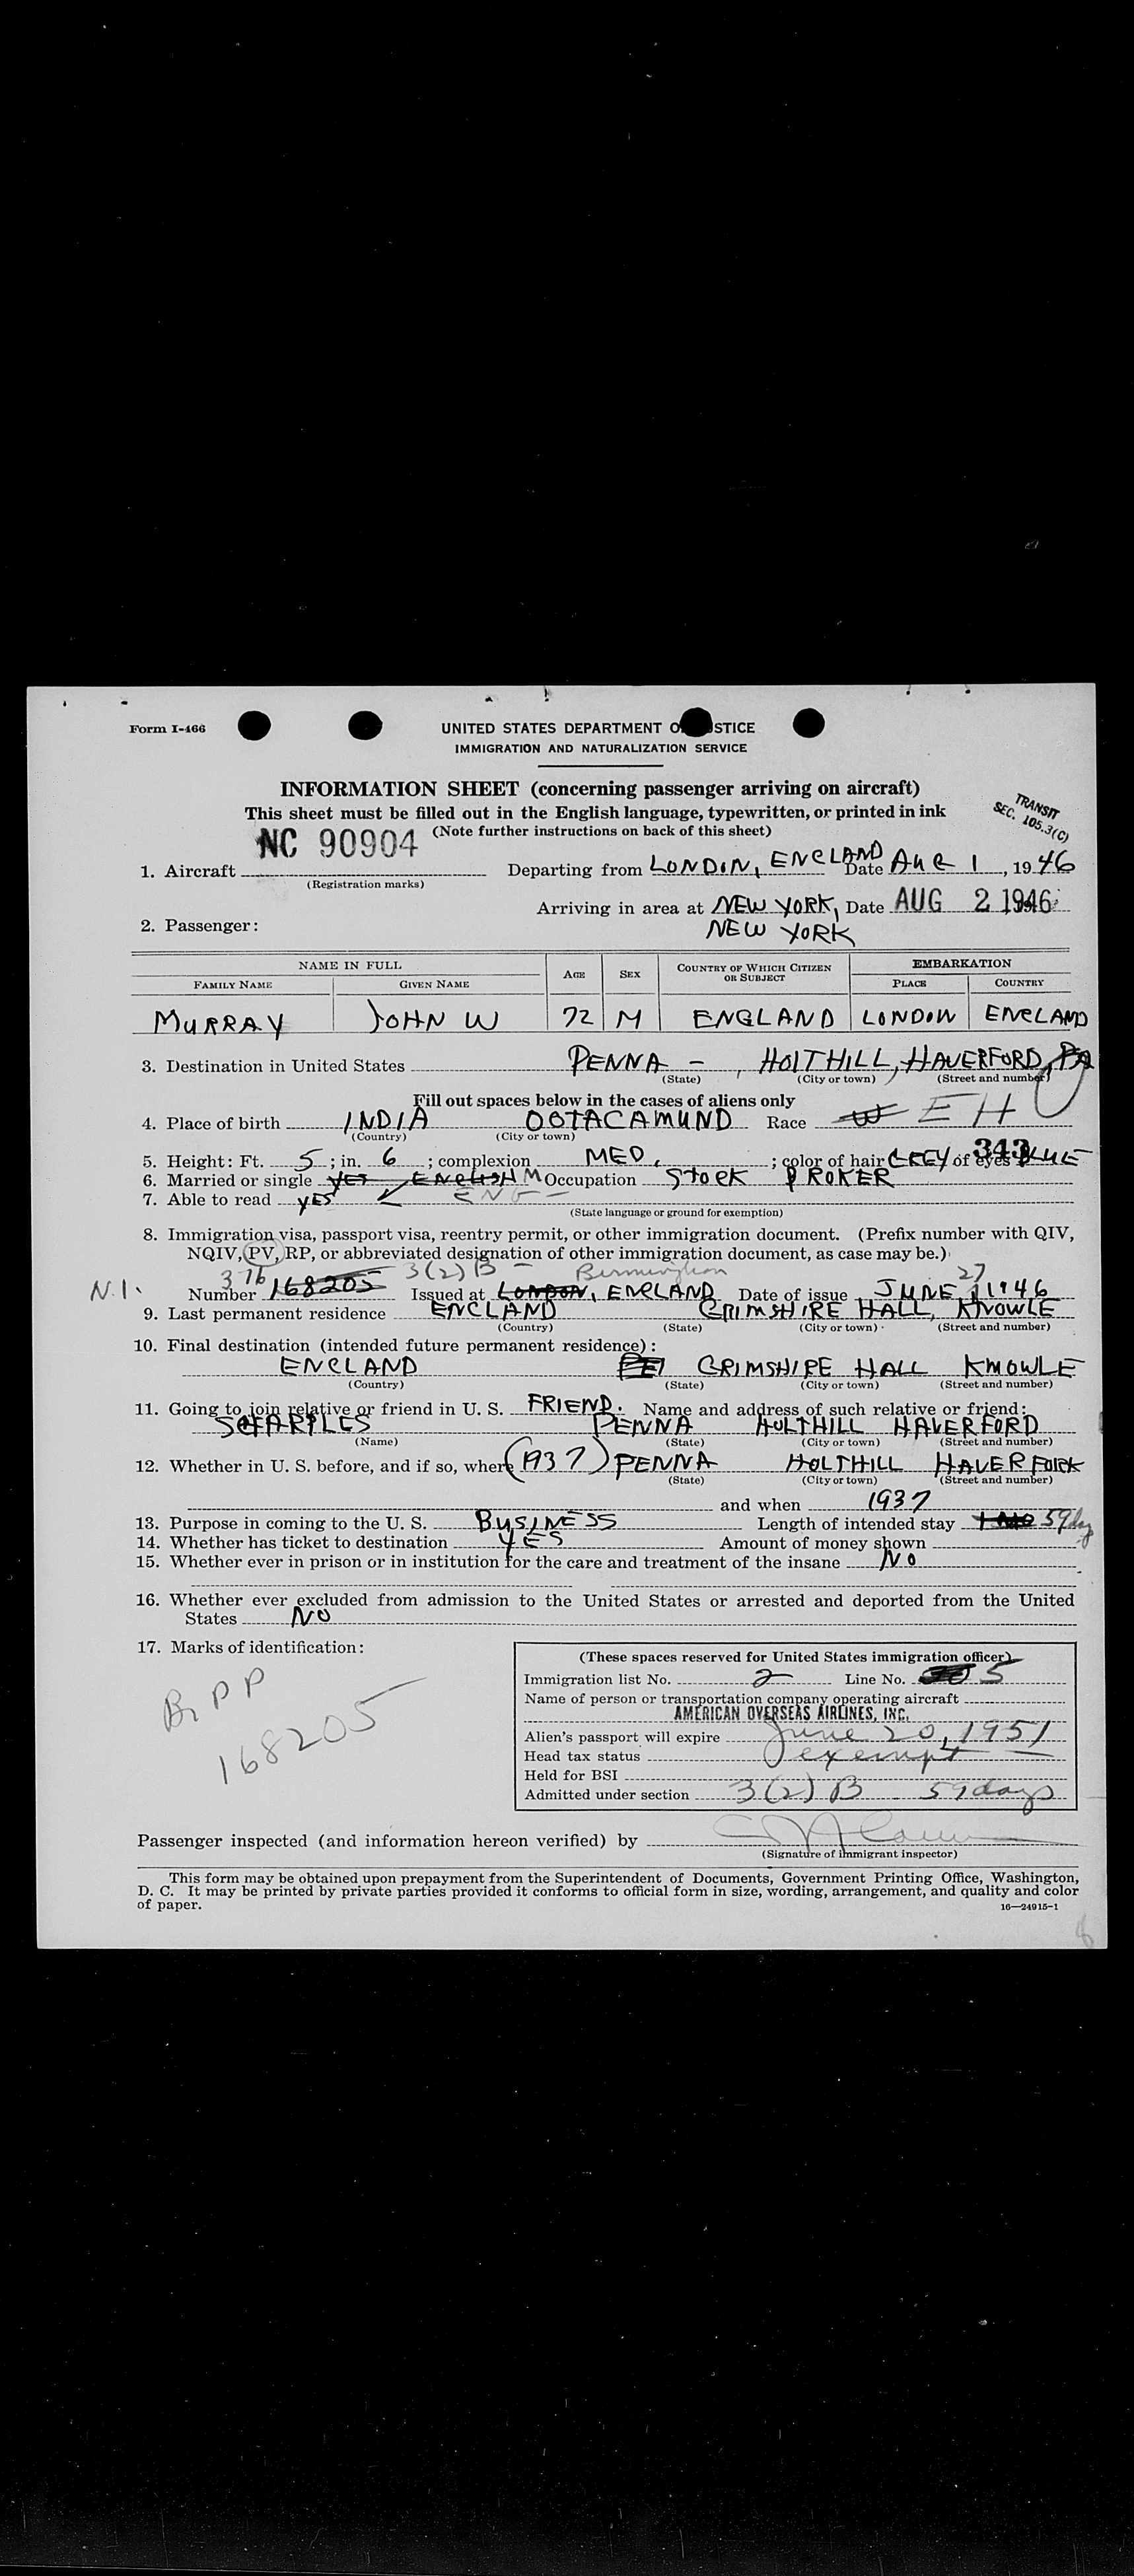 Form I-466
UNITED STATES DEPARTMENT O STICE
IMMIGRATION AND NATURALIZATION SERVICE
INFORMATION SHEET (concerning passenger arriving on aircraft)
This sheet must be filled out in the English language, typewritten, or printed in ink
(Note further instructions on back of this sheet)
TRANSIT
SEC. 105.3(C)
NC 90904
1. Aircraft Departing from LONDON, ENGLAND Date AUG 1, 1946
(Registration marks)
Arriving in area at NEW YORK, Date AUG 2 1946
2. Passenger: NEW YORK
NAME IN FULL AGE SEX COUNTRY OF WHICH CITIZEN OR SUBJECT EMBARKATION
FAMILY NAME GIVEN NAME PLACE COUNTRY
MURRAY JOHN W 72 M ENGLAND LONDON ENGLAND
3. Destination in United States PENNA - , HOLTHILL, HAVERFORD, PA
(State) (City or town) (Street and number)
Fill out spaces below in the cases of aliens only
4. Place of birth INDIA OOTACAMUND Race W EH
(Country) (City or town)
5. Height: Ft. 5; in. 6; complexion MED. ; color of hair GREY of eyes BLUE
343
6. Married or single YES ENGLISH M Occupation STOCK BROKER
7. Able to read YES ENG -
(State language or ground for exemption)
8. Immigration visa, passport visa, reentry permit, or other immigration document. (Prefix number with QIV,
NQIV, PV, RP, or abbreviated designation of other immigration document, as case may be.)
N.I. 376 3(2)B - Birmingham 27
Number 168205 Issued at LONDON, ENGLAND Date of issue JUNE 1946
9. Last permanent residence ENGLAND GRIMSHIRE HALL, KNOWLE
(Country) (State) (City or town) (Street and number)
10. Final destination (intended future permanent residence):
ENGLAND GRIMSHIRE HALL KNOWLE
(Country) (State) (City or town) (Street and number)
11. Going to join relative or friend in U. S. FRIEND. Name and address of such relative or friend:
SHARPLES PENNA HOLTHILL HAVERFORD
(Name) (State) (City or town) (Street and number)
12. Whether in U. S. before, and if so, where (1937) PENNA HOLTHILL HAVERFORD
(State) (City or town) (Street and number)
and when 1937
13. Purpose in coming to the U. S. BUSINESS Length of intended stay 1 MO 59 days
14. Whether has ticket to destination YES Amount of money shown
15. Whether ever in prison or in institution for the care and treatment of the insane NO
16. Whether ever excluded from admission to the United States or arrested and deported from the United
States NO
17. Marks of identification:
Br PP
168205
(These spaces reserved for United States immigration officer)
Immigration list No. 2 Line No. 5
Name of person or transportation company operating aircraft
AMERICAN OVERSEAS AIRLINES, INC.
Alien's passport will expire June 20, 1951
Head tax status exempt
Held for BSI
Admitted under section 3(2)B 59 days
Passenger inspected (and information hereon verified) by
(Signature of immigrant inspector)
This form may be obtained upon prepayment from the Superintendent of Documents, Government Printing Office, Washington,
D. C. It may be printed by private parties provided it conforms to official form in size, wording, arrangement, and quality and color
of paper.
16—24915-1
8